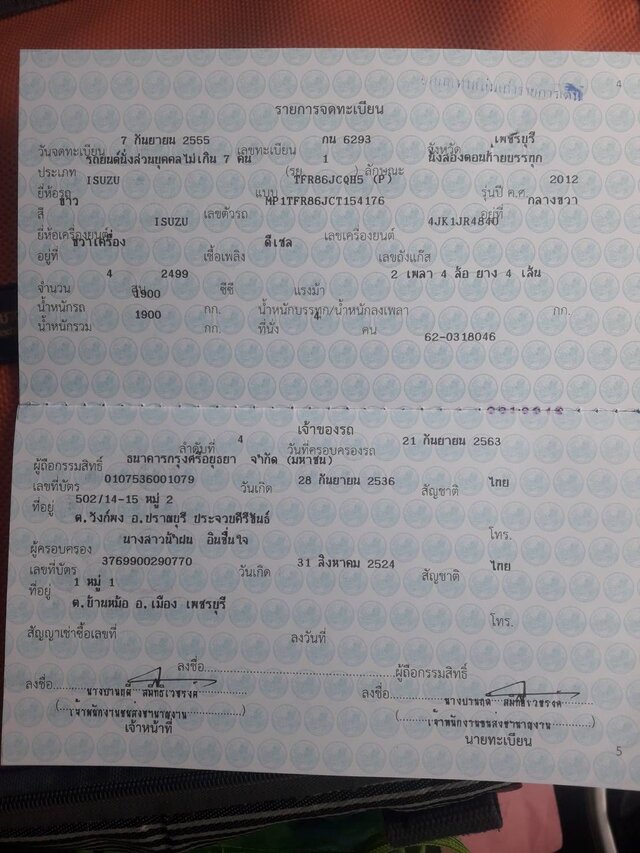 4
รายการจดทะเบียน
วันจดทะเบียน 7 กันยายน 2555 เลขทะเบียน กน 6293 จังหวัด เพชรบุรี
ประเภท รถยนต์นั่งส่วนบุคคลไม่เกิน 7 คน (รย. 1 ) ลักษณะ นั่งสองตอนท้ายบรรทุก
ยี่ห้อรถ ISUZU แบบ TFR86JCQH5 (P) รุ่นปี ค.ศ. 2012
สี ขาว เลขตัวรถ MP1TFR86JCT154176 อยู่ที่ กลางขวา
ยี่ห้อเครื่องยนต์ ISUZU เลขเครื่องยนต์ 4JK1JR4840
อยู่ที่ ขวาเครื่อง เชื้อเพลิง ดีเซล เลขถังแก๊ส
จำนวน 4 สูบ 2499 ซีซี แรงม้า 2 เพลา 4 ล้อ ยาง 4 เส้น
น้ำหนักรถ 1900 กก. น้ำหนักบรรทุก/น้ำหนักลงเพลา กก.
น้ำหนักรวม 1900 กก. ที่นั่ง 4 คน
62-0318046
เจ้าของรถ
ลำดับที่ 4 วันที่ครอบครองรถ 21 กันยายน 2563
ผู้ถือกรรมสิทธิ์ ธนาคารกรุงศรีอยุธยา จำกัด (มหาชน)
เลขที่บัตร 0107536001079 วันเกิด 28 กันยายน 2536 สัญชาติ ไทย
ที่อยู่ 502/14-15 หมู่ 2
ต.วังก์พง อ.ปราณบุรี ประจวบคีรีขันธ์ โทร.
ผู้ครอบครอง นางสาวน้ำฝน อินชื่นใจ
เลขที่บัตร 3769900290770 วันเกิด 31 สิงหาคม 2524 สัญชาติ ไทย
ที่อยู่ 1 หมู่ 1
ต.บ้านหม้อ อ.เมือง เพชรบุรี โทร.
สัญญาเช่าซื้อเลขที่ ลงวันที่
ลงชื่อ ผู้ถือกรรมสิทธิ์
ลงชื่อ ลงชื่อ
(เจ้าพนักงานขนส่งชำนาญงาน) (เจ้าพนักงานขนส่งชำนาญงาน)
เจ้าหน้าที่ นายทะเบียน
5